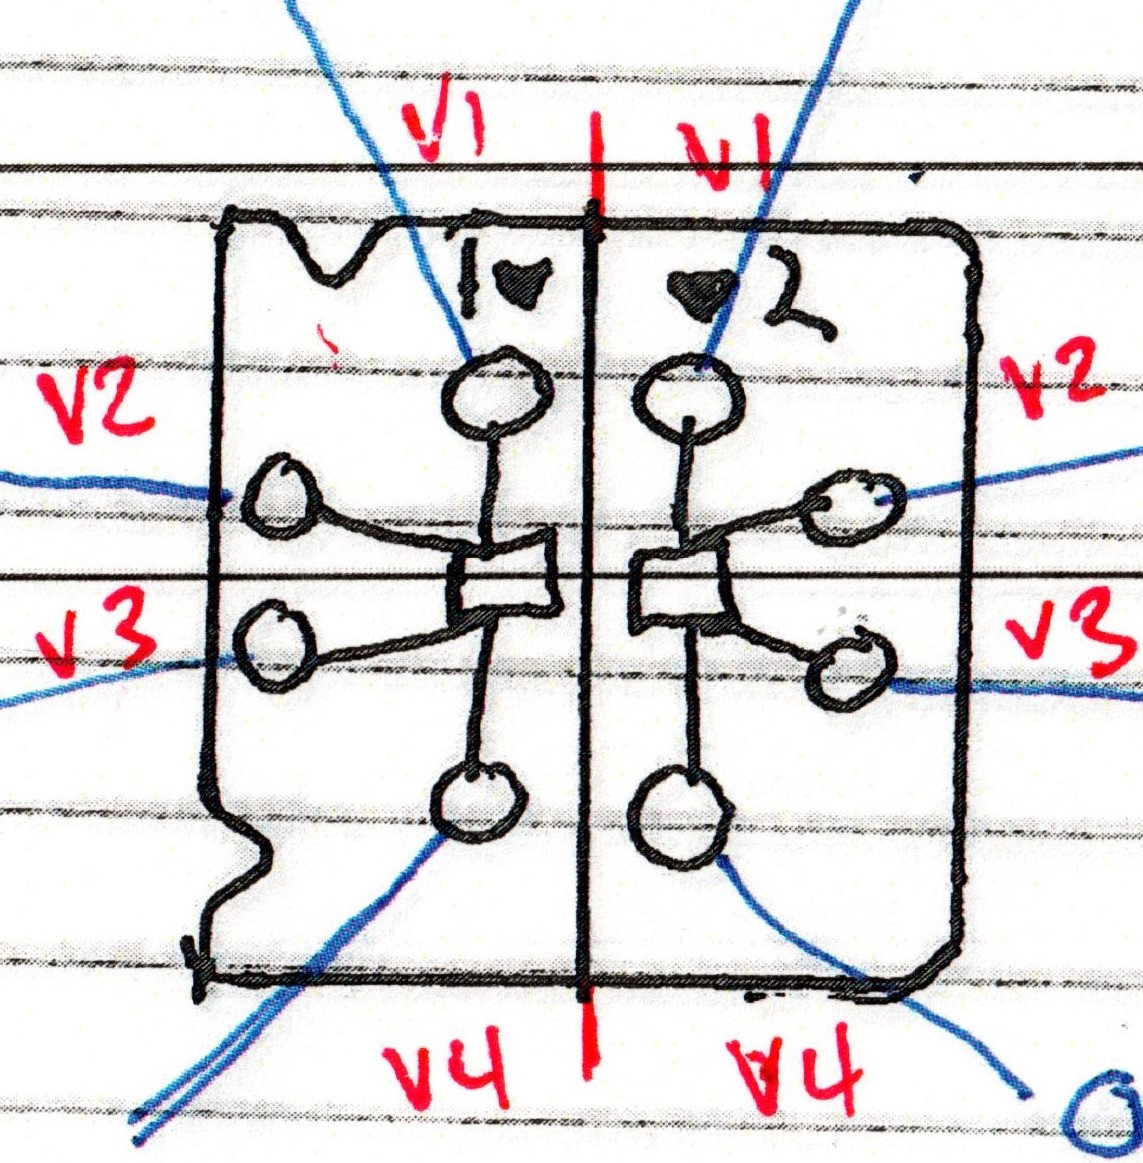 V1 V1
1 2
V2 V2
V3 V3
V4 V4